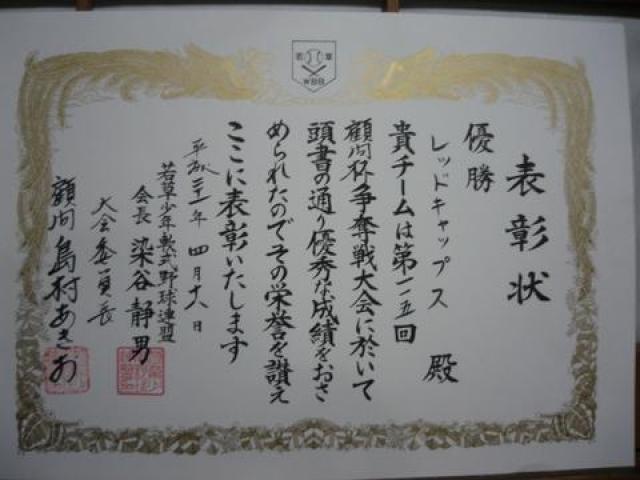 若 草
WBB
表彰状
優勝
レッドキャップス 殿
貴チームは第二五回
顧問杯争奪戦大会に於いて
頭書の通り優秀な成績をおさ
められたのでその栄誉を讃え
ここに表彰いたします
平成二十一年 四月十八日
若草少年軟式野球連盟
会長 染谷静男
大会委員長
顧問 島村あきお